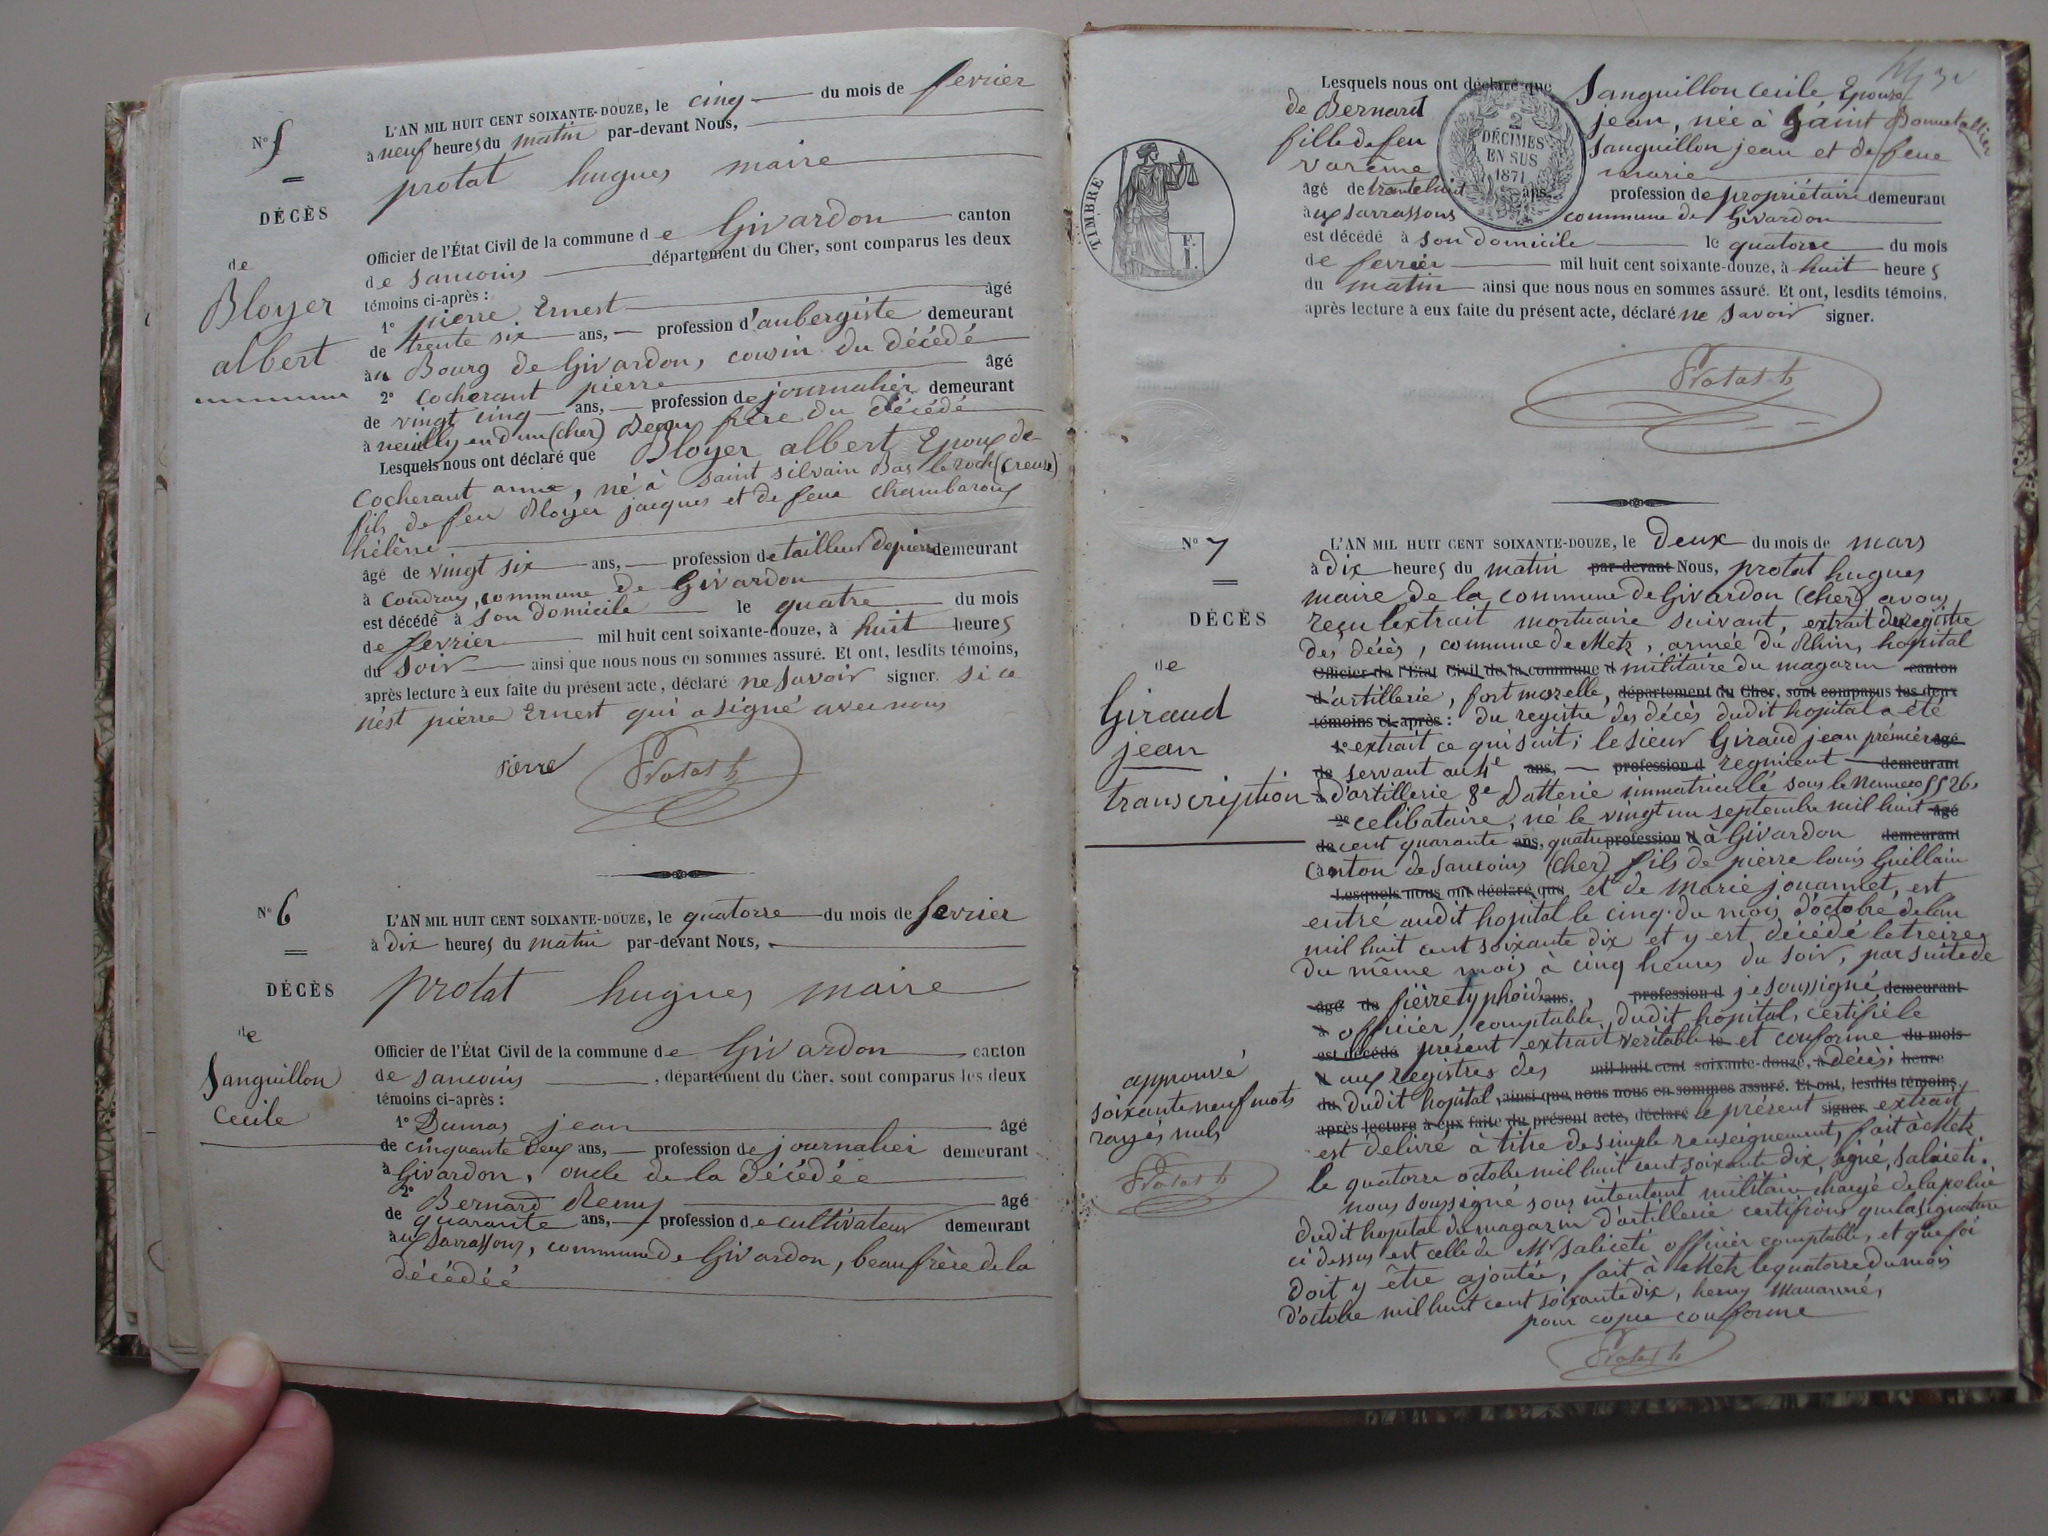 N° 5
DÉCÈS
de
Bloyer
albert
L'AN MIL HUIT CENT SOIXANTE-DOUZE, le cinq du mois de fevrier
à neuf heures du matin par-devant Nous,
protat hugues maire
Officier de l'État Civil de la commune de Givardon canton
de sancoins département du Cher, sont comparus les deux
témoins ci-après :
1° pierre Ernest âgé
de trente six ans, profession d'aubergiste demeurant
au Bourg de Givardon, cousin du décédé
2° Cocherant pierre âgé
de vingt cinq ans, profession de journalier demeurant
à neuilly en dun (cher) Beau frère du décédé
Lesquels nous ont déclaré que Bloyer albert Epoux de
Cocherant anne, né à saint silvain Bas le roch (Creuse)
fils de feu Bloyer jacques et de feue Chambaroux
hélène
âgé de vingt six ans, profession de tailleur de pierre demeurant
à Coudray, commune de Givardon
est décédé à son domicile le quatre du mois
de fevrier mil huit cent soixante-douze, à huit heures
du soir ainsi que nous nous en sommes assuré. Et ont, lesdits témoins,
après lecture à eux faite du présent acte, déclaré ne savoir signer. si ce
n'est pierre Ernest qui a signé avec nous
pierre Protat h
N° 6
DÉCÈS
de
Sanguillon
Cecile
L'AN MIL HUIT CENT SOIXANTE-DOUZE, le quatorze du mois de fevrier
à dix heures du matin par-devant Nous,
protat hugues maire
Officier de l'État Civil de la commune de Givardon canton
de sancoins, département du Cher, sont comparus les deux
témoins ci-après :
1° Dumas jean âgé
de cinquante deux ans, profession de journalier demeurant
à Givardon, oncle de la décédée
2° Bernard Remy âgé
de quarante ans, profession de cultivateur demeurant
aux Sarrassons, commune de Givardon, beau frère de la
décédée
Lesquels nous ont déclaré que Sanguillon Cecile Epouse
de Bernard jean, née à Saint Bonnet allier
fille de feu Sanguillon jean et de feue
varême marie
âgé de trente huit ans profession de propriétaire demeurant
aux sarrassons commune de Givardon
est décédé à son domicile le quatorze du mois
de fevrier mil huit cent soixante-douze, à huit heures
du matin ainsi que nous nous en sommes assuré. Et ont, lesdits témoins,
après lecture à eux faite du présent acte, déclaré ne savoir signer.
Protat h
2
DÉCIMES
EN SUS
1871
TIMBRE
F.
1.
N° 7
DÉCÈS
de
Giraud
jean
transcription
L'AN MIL HUIT CENT SOIXANTE-DOUZE, le deux du mois de mars
à dix heures du matin par-devant Nous, protat hugues
maire de la commune de Givardon (cher) avons
reçu l'extrait mortuaire suivant, extrait du registre
des décès, commune de Metz, armée du Rhin, hopital
Officier de l'État Civil de la commune d militaire du magazin canton
d'artillerie, fort mozelle, département du Cher, sont comparus les deux
témoins ci-après : du registre des décès dudit hopital a été
1° extrait ce qui suit ; le sieur Giraud jean prémier âgé
de servant au 4e ans, profession d regiment demeurant
à d'artillerie 8e Batterie immatriculé sous le numero 5526,
2e celibataire, né le vingt un septembre mil huit âgé
de cent quarante ans, quatre profession d à Givardon demeurant
Canton de Sancoins (cher) fils de pierre louis Guillain
Lesquels nous ont déclaré que et de Marie jouannet, est
entre audit hopital le cinq du mois d'octobre de l'an
mil huit cent soixante dix et y est décédé le treize
du même mois à cinq heures du soir, par suite de
âgé de fièvre typhoïde ans, profession d je soussigné demeurant
à officier comptable dudit hopital, certifie le
est décédé présent extrait veritable le et conforme du mois
d aux registres des mil huit cent soixante-douze, à décès heure
du dudit hopital, ainsi que nous nous en sommes assuré. Et ont, lesdits témoins,
après lecture à eux faite du présent acte, déclaré le présent signer extrait
est delivré à titre de simple renseignement, fait à Metz
le quatorze octobre mil huit cent soixante dix, signé, Saliceti.
nous soussigné sous intendant militaire chargé de la police
dudit hopital du magazin d'artillerie certifions que la signature
ci dessus est celle de Mr Saliceti officier comptable, et que foi
doit y être ajoutée, fait à Metz le quatorze du mois
d'octobre mil huit cent soixante dix, henry
pour copie conforme
Protat h
approuvé
soixante neuf mots
rayés nuls
Protat h